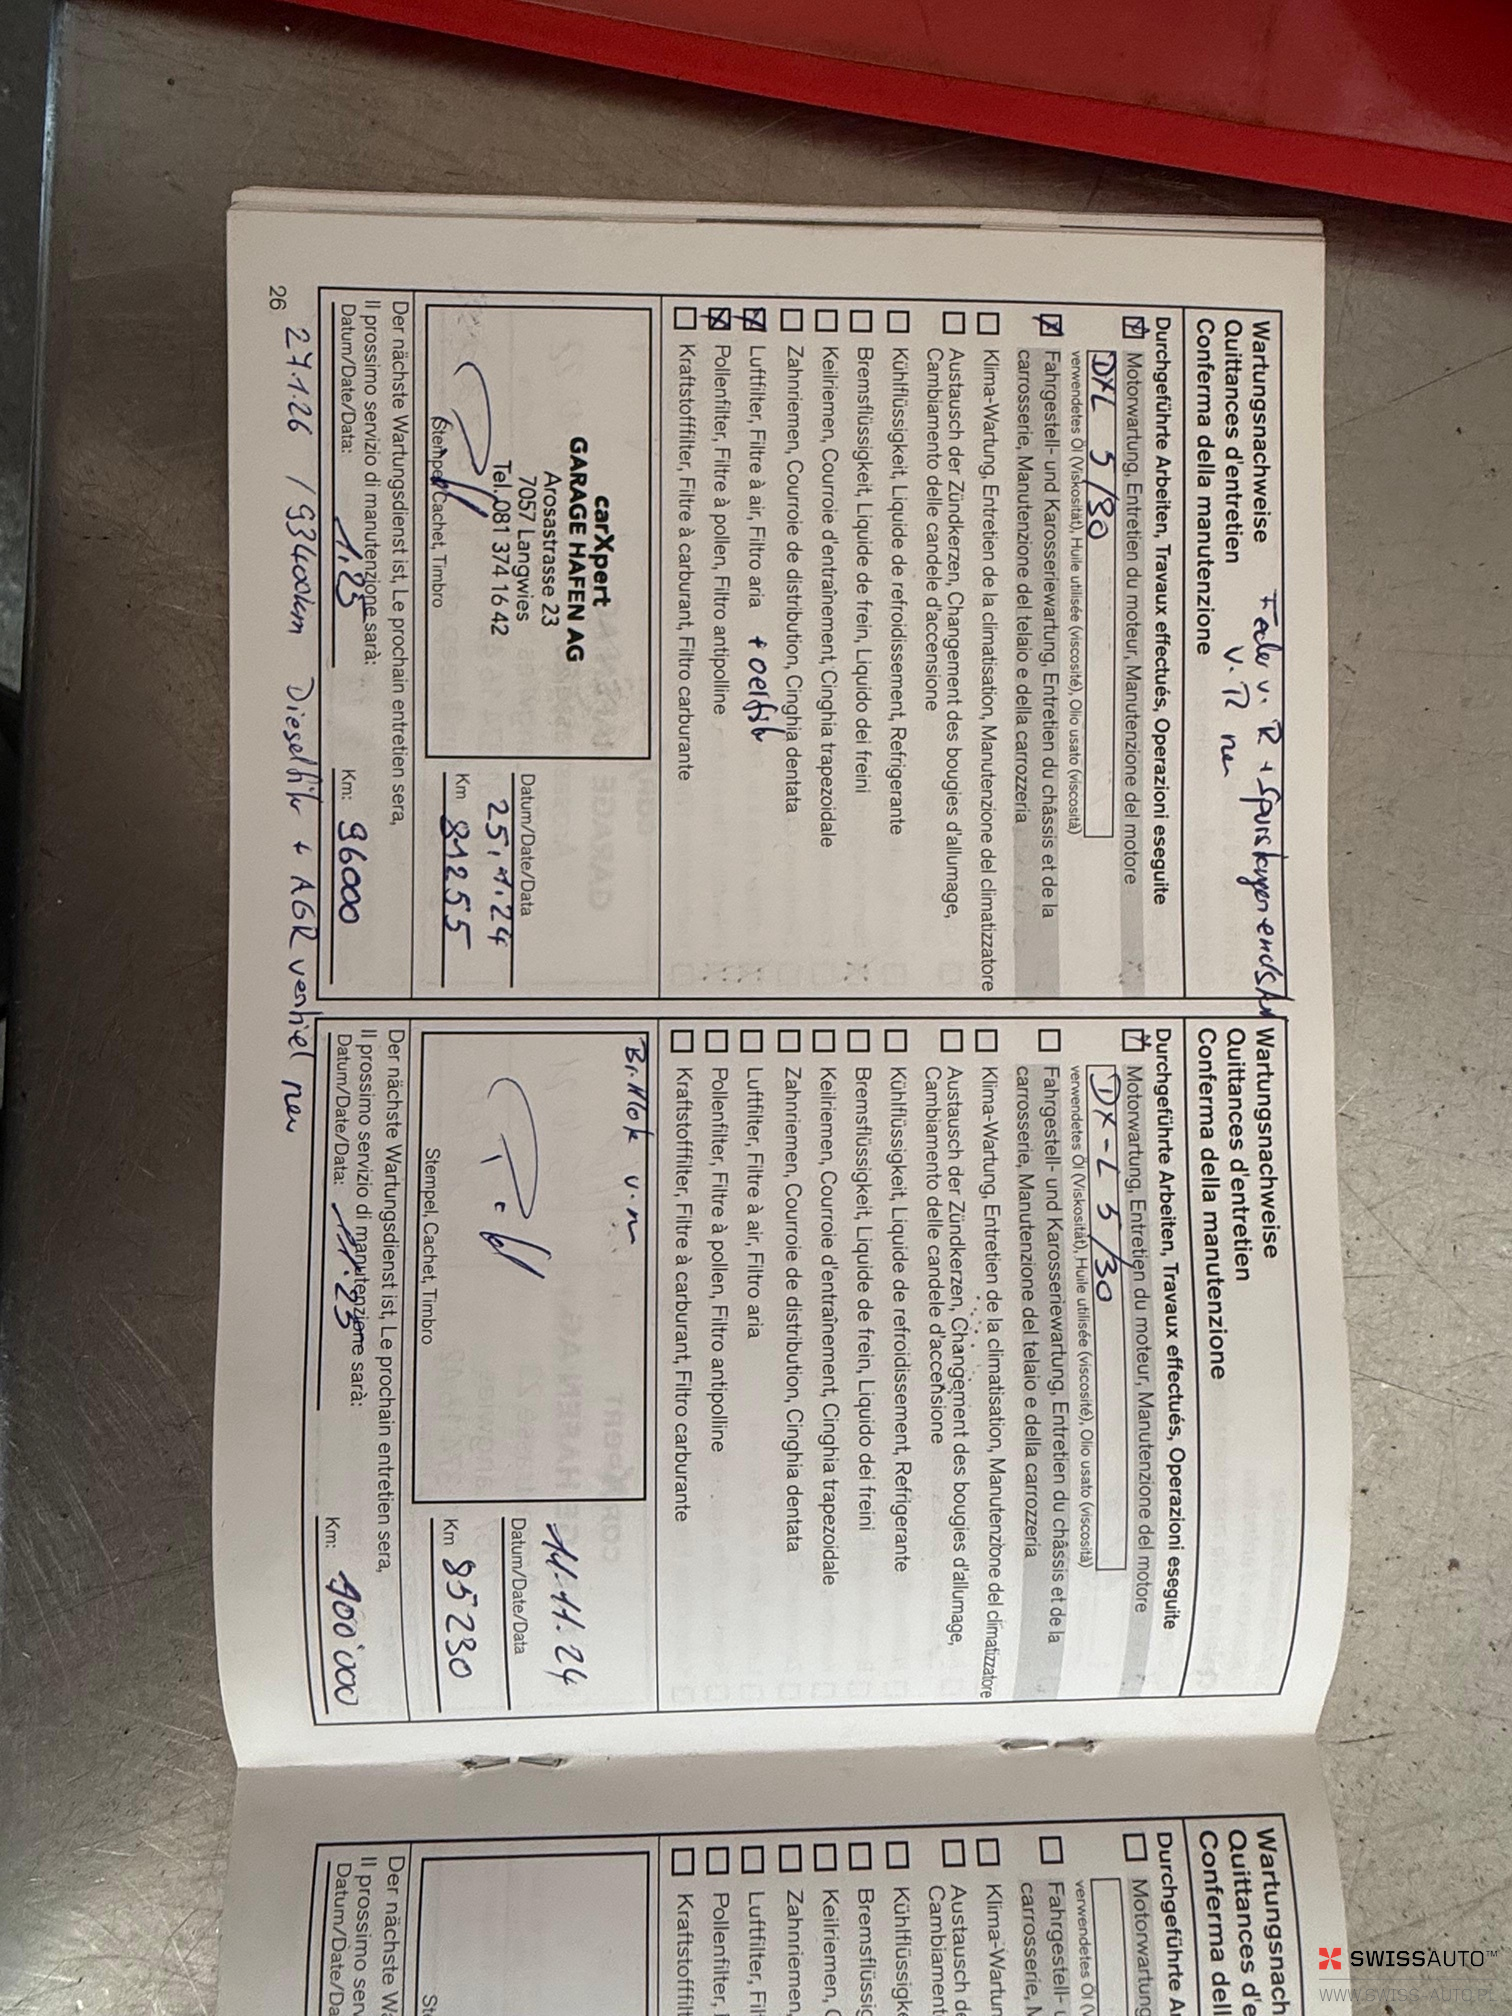 Wartungsnachweise
Quittances d'entretien
Conferma della manutenzione
Feder v. R + Spurstangenendstk
v. R neu
Durchgeführte Arbeiten, Travaux effectués, Operazioni eseguite
Motorwartung, Entretien du moteur, Manutenzione del motore
DXL 5/30
verwendetes Öl (Viskosität), Huile utilisée (viscosité), Olio usato (viscosità)
Fahrgestell- und Karosseriewartung, Entretien du châssis et de la
carrosserie, Manutenzione del telaio e della carrozzeria
Klima-Wartung, Entretien de la climatisation, Manutenzione del climatizzatore
Austausch der Zündkerzen, Changement des bougies d'allumage,
Cambiamento delle candele d'accensione
Kühlflüssigkeit, Liquide de refroidissement, Refrigerante
Bremsflüssigkeit, Liquide de frein, Liquido dei freini
Keilriemen, Courroie d'entraînement, Cinghia trapezoidale
Zahnriemen, Courroie de distribution, Cinghia dentata
Luftfilter, Filtre à air, Filtro aria + oelfilt
Pollenfilter, Filtre à pollen, Filtro antipolline
Kraftstofffilter, Filtre à carburant, Filtro carburante
carXpert
GARAGE HAFEN AG
Arosastrasse 23
7057 Langwies
Tel.081 374 16 42
Stempel, Cachet, Timbro
25.1.24
Datum/Date/Data
Km 81255
Der nächste Wartungsdienst ist, Le prochain entretien sera,
Il prossimo servizio di manutenzione sarà:
Datum/Date/Data: 1.25
Km: 96000
26
27.1.26 / 93400km Dieselfilt + AGR ventiel neu
Wartungsnachweise
Quittances d'entretien
Conferma della manutenzione
Durchgeführte Arbeiten, Travaux effectués, Operazioni eseguite
Motorwartung, Entretien du moteur, Manutenzione del motore
DX-L 5/30
verwendetes Öl (Viskosität), Huile utilisée (viscosité), Olio usato (viscosità)
Fahrgestell- und Karosseriewartung, Entretien du châssis et de la
carrosserie, Manutenzione del telaio e della carrozzeria
Klima-Wartung, Entretien de la climatisation, Manutenzione del climatizzatore
Austausch der Zündkerzen, Changement des bougies d'allumage,
Cambiamento delle candele d'accensione
Kühlflüssigkeit, Liquide de refroidissement, Refrigerante
Bremsflüssigkeit, Liquide de frein, Liquido dei freini
Keilriemen, Courroie d'entraînement, Cinghia trapezoidale
Zahnriemen, Courroie de distribution, Cinghia dentata
Luftfilter, Filtre à air, Filtro aria
Pollenfilter, Filtre à pollen, Filtro antipolline
Kraftstofffilter, Filtre à carburant, Filtro carburante
Br. Klötz v. n
Stempel, Cachet, Timbro
11.11.24
Datum/Date/Data
Km 85230
Der nächste Wartungsdienst ist, Le prochain entretien sera,
Il prossimo servizio di manutenzione sarà:
Datum/Date/Data: 11.25
Km: 100'000
Wartungsnach
Quittances d'e
Conferma dell
Durchgeführte A
Motorwartung
verwendetes Öl (V
Fahrgestell- u
carrosserie, M
Klima-Wartun
Austausch de
Cambiament
Kühlflüssigke
Bremsflüssig
Keilriemen, C
Zahnriemen,
Luftfilter, Fil
Pollenfilter,
Kraftstofffilt
St
Der nächste Wa
Il prossimo serv
Datum/Date/Da
SWISSAUTO™
WWW.SWISS-AUTO.PL